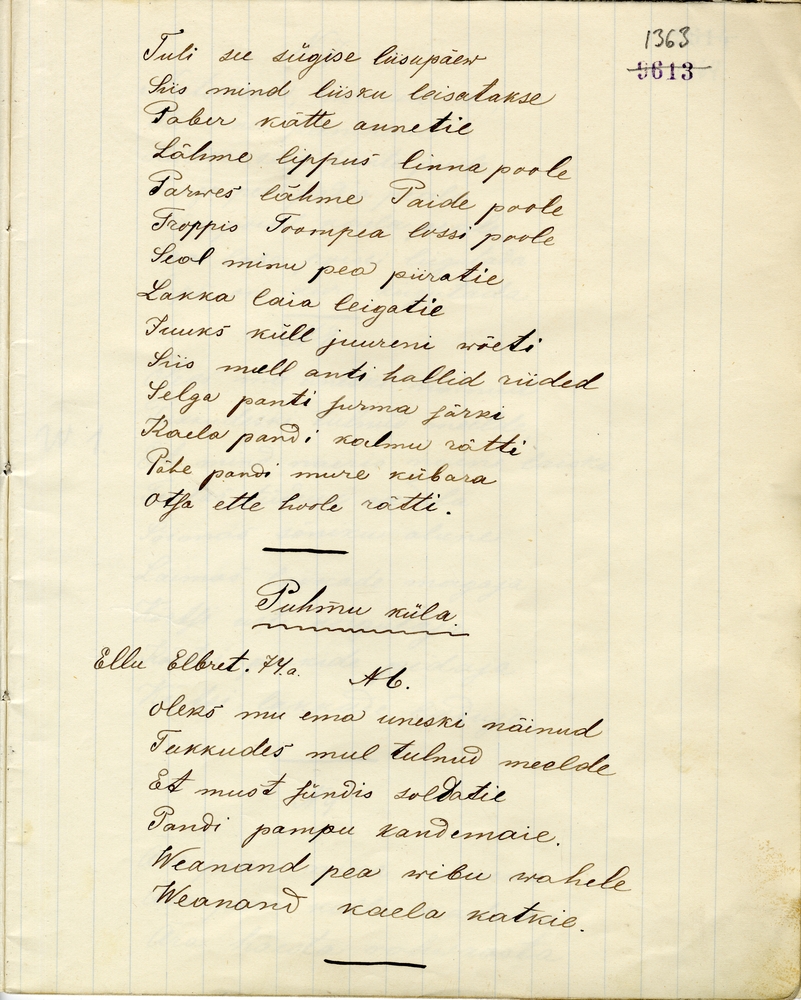 1363
9613
Tuli see sügise liisupäew
Siis mind liisku leisatakse
Paber kätte annetie
Lähme lippus linna poole
Parwes lähme Paide poole
Troppis Toompea lossi poole
Seal minu pea piiratie
Lakka laia leigatie
Juuks küll juureni wõeti
Siis mull anti hallid riided
Selga panti surma särki
Kaela pandi kalmu rätti
Pähe pandi mure kübara
Otsa ette hoole rätti.
Puhmu küla.
Ellu Elbret. 74.a.
Nb.
Oleks mu ema uneski näinud
Tukkudes mul tulnud meelde
Et must sündis soldatie
Pandi pampu kandemaie.
Weanand pea wibu wahele
Weanand kaela katkie.